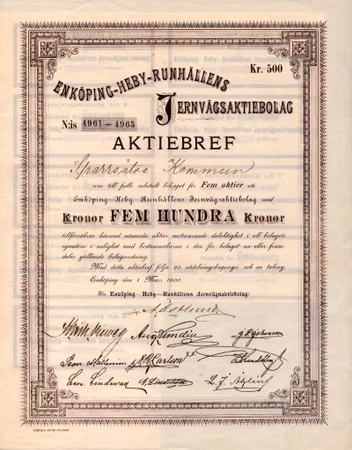 Kr. 500
ENKÖPING-HEBY-RUNHÄLLENS
JERNVÄGSAKTIEBOLAG
N:is 4961 - 4965
AKTIEBREF
Sparrsätra Kommun
som till fullo inbetalt beloppet för Fem aktier uti
Enköping-Heby-Runhällens Jernvägsaktiebolag med
Kronor FEM HUNDRA Kronor
tillförsäkras härmed nämnda aktier motsvarande delaktighet i all bolagets
egendom i enlighet med bestämmelserna i den för bolaget nu eller fram-
deles gällande bolagsordning.
Med detta aktiebref följa 20 utdelningskuponger och en talong.
Enköping den 1 Mars 1906.
För Enköping-Heby-Runhällens Jernvägsaktiebolag:
Aug Lundin
Carlson